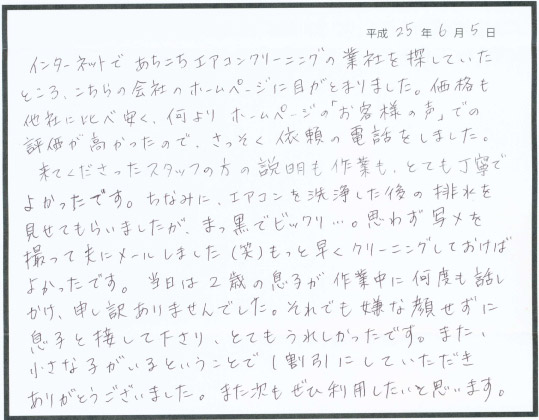 平成25年6月5日
インターネットであちこちエアコンクリーニングの業社を探していた
ところ、こちらの会社のホームページに目がとまりました。価格も
他社に比べ安く、何よりホームページの「お客様の声」での
評価が高かったので、さっそく依頼の電話をしました。
来てくださったスタッフの方の説明も作業も、とても丁寧で
よかったです。ちなみに、エアコンを洗浄した後の排水を
見せてもらいましたが、まっ黒でビックリ…。思わず写メを
撮って夫にメールしました(笑)もっと早くクリーニングしておけば
よかったです。当日は2歳の息子が作業中に何度も話し
かけ、申し訳ありませんでした。それでも嫌な顔せずに
息子と接して下さり、とてもうれしかったです。また、
小さな子がいるということで1割引にしていただき
ありがとうございました。また次もぜひ利用したいと思います。